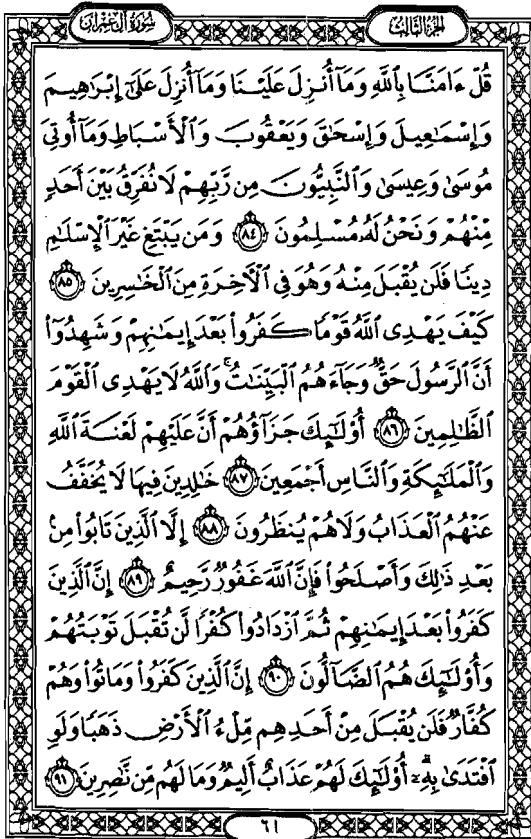 سورة آل عمران
الجزء الثالث
قُلْ ءَامَنَّا بِٱللَّهِ وَمَآ أُنزِلَ عَلَيْنَا وَمَآ أُنزِلَ عَلَىٰٓ إِبْرَٰهِيمَ
وَإِسْمَٰعِيلَ وَإِسْحَٰقَ وَيَعْقُوبَ وَٱلْأَسْبَاطِ وَمَآ أُوتِىَ
مُوسَىٰ وَعِيسَىٰ وَٱلنَّبِيُّونَ مِن رَّبِّهِمْ لَا نُفَرِّقُ بَيْنَ أَحَدٍ
مِّنْهُمْ وَنَحْنُ لَهُۥ مُسْلِمُونَ ٨٤ وَمَن يَبْتَغِ غَيْرَ ٱلْإِسْلَٰمِ
دِينًا فَلَن يُقْبَلَ مِنْهُ وَهُوَ فِى ٱلْأَخِرَةِ مِنَ ٱلْخَٰسِرِينَ ٨٥
كَيْفَ يَهْدِى ٱللَّهُ قَوْمًا كَفَرُوا۟ بَعْدَ إِيمَٰنِهِمْ وَشَهِدُوٓا۟
أَنَّ ٱلرَّسُولَ حَقٌّ وَجَآءَهُمُ ٱلْبَيِّنَٰتُ ۚ وَٱللَّهُ لَا يَهْدِى ٱلْقَوْمَ
ٱلظَّٰلِمِينَ ٨٦ أُو۟لَٰٓئِكَ جَزَآؤُهُمْ أَنَّ عَلَيْهِمْ لَعْنَةَ ٱللَّهِ
وَٱلْمَلَٰٓئِكَةِ وَٱلنَّاسِ أَجْمَعِينَ ٨٧ خَٰلِدِينَ فِيهَا لَا يُخَفَّفُ
عَنْهُمُ ٱلْعَذَابُ وَلَا هُمْ يُنظَرُونَ ٨٨ إِلَّا ٱلَّذِينَ تَابُوا۟ مِنۢ
بَعْدِ ذَٰلِكَ وَأَصْلَحُوا۟ فَإِنَّ ٱللَّهَ غَفُورٌ رَّحِيمٌ ٨٩ إِنَّ ٱلَّذِينَ
كَفَرُوا۟ بَعْدَ إِيمَٰنِهِمْ ثُمَّ ٱزْدَادُوا۟ كُفْرًا لَّن تُقْبَلَ تَوْبَتُهُمْ
وَأُو۟لَٰٓئِكَ هُمُ ٱلضَّآلُّونَ ٩٠ إِنَّ ٱلَّذِينَ كَفَرُوا۟ وَمَاتُوا۟ وَهُمْ
كُفَّارٌ فَلَن يُقْبَلَ مِنْ أَحَدِهِم مِّلْءُ ٱلْأَرْضِ ذَهَبًا وَلَوِ
ٱفْتَدَىٰ بِهِۦٓ ۗ أُو۟لَٰٓئِكَ لَهُمْ عَذَابٌ أَلِيمٌ وَمَا لَهُم مِّن نَّٰصِرِينَ ٩١
٦١